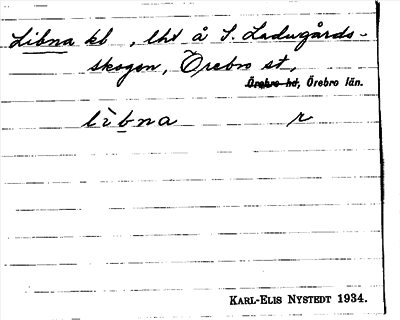 Libna kb, lht å S. Ladugårds-
skogen, Örebro st,
Örebro hd, Örebro län.
lìbna r
KARL-ELIS NYSTEDT 1934.